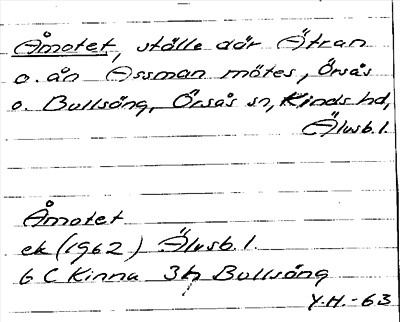 Åmotet, ställe där Ätran
o. ån Assman mötes, Örsås
o. Bullsäng, Örsås sn, Kinds hd,
Älvsb. l.
Åmotet
ek (1962) Älvsb. l.
6 C Kinna 3h Bullsäng
Y.H.-63